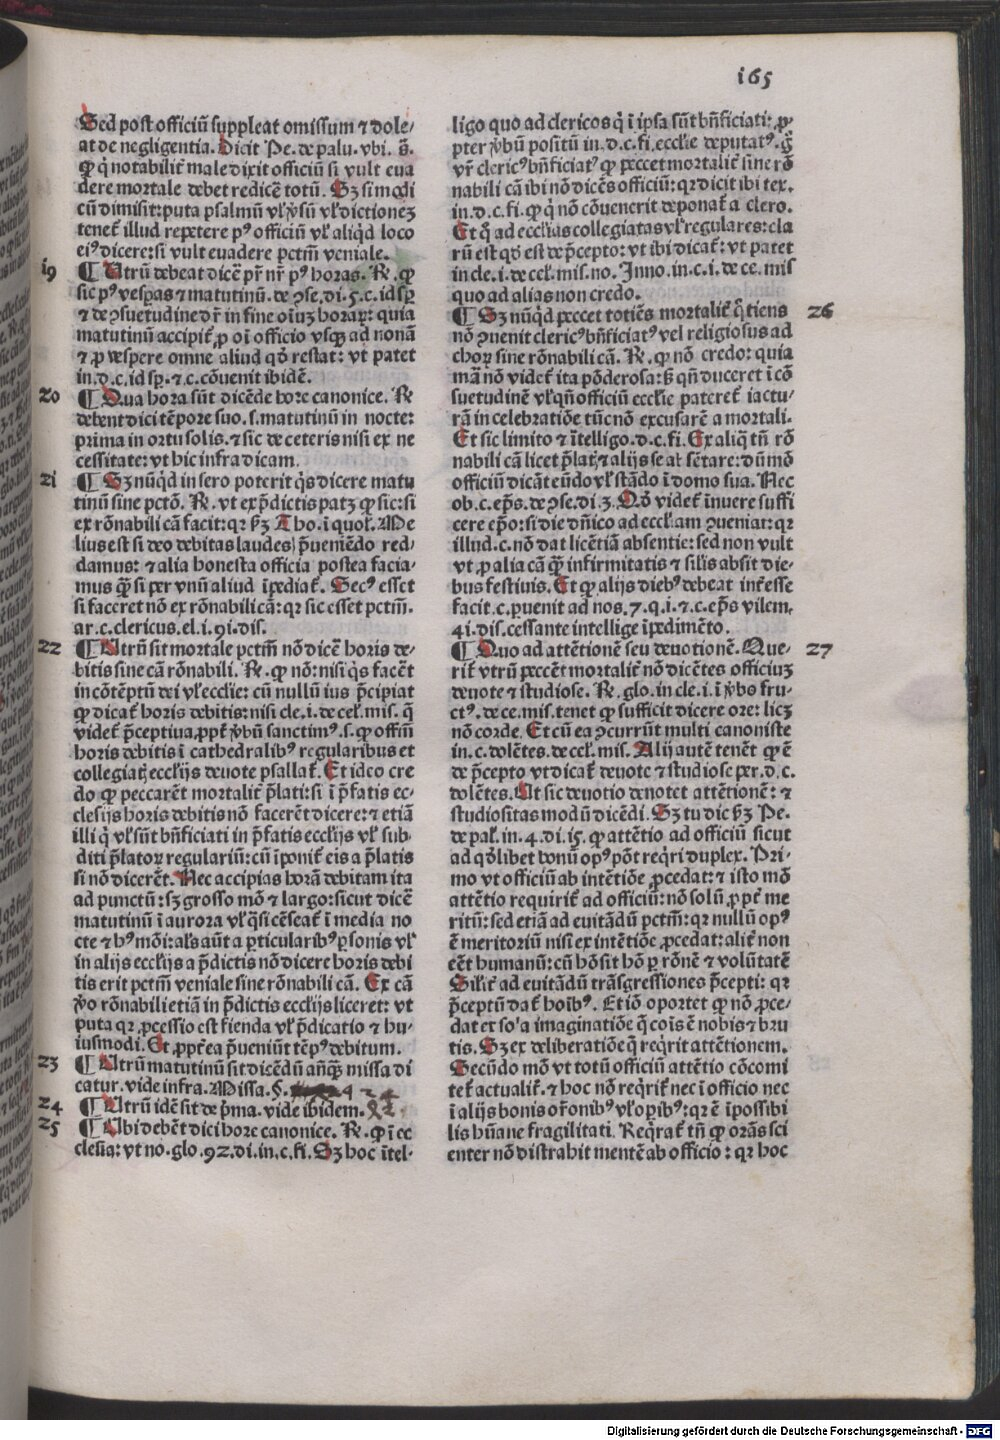 i65
Sed post officiū suppleat omissum ⁊ dole/
at de negligentia. Dicit Pe. de palu. vbi. s̄.
ꝙ q̇ notabilit̃ male dixit officiū si vult eua
dere mortale debet redicē totū. Sꝫ si modi
cū dimisit: puta psalmū vl̓ v̓sū vl̓ dictionez
tenet̃ illud repetere pꝰ officiū vl̓ aliqd̓ loco
eiꝰ dicere: si vult euadere pctm̄ veniale.
i9
¶ Utrū debeat dicē pr̄ nr̄ pꝰ horas. R̃. ꝙ
sic pꝰ vesꝑas ⁊ matutinū. de ꝯse. di. 5. c. id sꝑ
⁊ de ꝯsuetudine dr̄ in fine oīuꝫ horaꝝ: quia
matutinū accipit̃ ꝓ oī officio vsqꝫ ad nonā
⁊ ꝓ vespere omne aliud qd̓ restat: vt patet
in. d. c. id sꝑ. ⁊ c. cōuenit ibidē.
20
¶ Qua hora sūt dicēde hore canonice. R̃
debent dici tēpore suo. s. matutinū in nocte:
prima in ortu solis. ⁊ sic de ceteris nisi ex ne
cessitate: vt hic infra dicam.
2i
¶ Sꝫ nūqd̓ in sero poterit q̇s dicere matu
tinū sine pctō. R̃. vt ex p̄dictis patꝫ ꝙ sic: si
ex rōnabili cā facit: qꝛ ẜꝫ Tho. ī quol̓. Me
lius est si deo debitas laudes p̄ueniēdo red/
damus: ⁊ alia honesta officia postea facia/
mus q̄ꝫ si per vnū aliud īpediat̃. Secꝰ esset
si faceret nō ex rōnabili cā: qꝛ sic esset pctm̄.
ar. c. clericus. el. i. 9i. dis.
22
¶ Utrū sit mortale pctm̄ nō dicē horis de/
bitis sine cā rōnabili. R̃. ꝙ nō: nisi q̇s facēt
in cōtēptū dei vl̓ eccl̓ie: cū nullū ius p̄cipiat
ꝙ dicat̃ horis debitis: nisi cle. i. de cel̓. mis. q̄
videt̃ p̄ceptiua, ꝓpt̃ v̓bū sanctimꝰ. s. ꝙ offm̄
horis debitis ī cathedralibꝰ regularibus et
collegiatꝭ eccl̓ijs deuote psallat̃. Et ideo cre
do ꝙ peccarēt mortalit̃ p̄lati: si ī p̄fatis ec/
clesijs horis debitis nō facerēt dicere: ⁊ etiā
illi q̇ vl̓ sūt bn̄ficiati in p̄fatis eccl̓ijs vl̓ sub/
diti p̄latoꝝ regulariū: cū īponit̃ eis a p̄latis
si nō dicerēt. Nec accipias horā debitam ita
ad punctū: sꝫ grosso mō ⁊ largo: sicut dicē
matutinū ī aurora vl̓ q̇si cēseat̃ ī media no
cte ⁊ hꝰ mōi: al̓s aūt a ꝑticularibꝰ ꝑsonis vl̓
in alijs eccl̓ijs a p̄dictis nō dicere horis debi
tis erit pctm̄ veniale sine rōnabili cā. Ex cā
v̓o rōnabili etiā in p̄dictis eccl̓ijs liceret: vt
puta qꝛ ꝓcessio est fienda vl̓ p̄dicatio ⁊ hu/
iusmodi. Et ꝓpt̃ea p̄ueniūt tēpꝰ debitum.
23
¶ Utrū matutinū sit dicēdū añqꝫ missa di
catur. vide infra. Missa. §. 24
24
¶ Utrū idē sit de p̄ma. vide ibidem.
25
¶ Ubi debēt dici hore canonice. R̃. ꝙ ī ec
clesia: vt no. glo. 92. di. in. c. fi. Sꝫ hoc ītel/
ligo quo ad clericos q̇ ī ipsa sūt bn̄ficiati: ꝓ/
pter v̓bū positū in. d. c. fi. eccl̓ie deputatꝰ. g̊
vr̄ clericꝰ bn̄ficiatꝰ ꝙ peccet mortalit̃ sine rō
nabili cā ibi nō dicēs officiū: qꝛ dicit ibi tex.
in. d. c. fi. ꝙ q̇ nō cōuenerit deponat̃ a clero.
Et q̇ ad eccl̓ias collegiatas vl̓ regulares: cla
rū est qd̓ est de p̄cepto: vt ibi dicat̃: vt patet
in cle. i. de cel̓. mis. no. Inno. in. c. i. de ce. mis
quo ad alias non credo.
26
¶ Sꝫ nūqd̓ peccet totiēs mortalit̃ q̇tiens
nō ꝯuenit clericꝰ bn̄ficiatꝰ vel religiosus ad
choꝝ sine rōnabili cā. R̃. ꝙ nō credo: quia
mā nō videt̃ ita pōderosa: ẜ qn̄ duceret̃ ī cō
suetudinē vl̓ qn̄ officiū eccl̓ie pateret̃ iactu/
rā in celebratiōe tūc nō excusarē a mortali.
Et sic limito ⁊ ītelligo. d. c. fi. Ex aliq̇ tn̄ rō
nabili cā licet p̄latꝭ ⁊ alijs se absētare: dū mō
officiū dicāt eūdo vl̓ stādo ī domo sua. Nec
ob. c. ep̄s. de ꝯse. di. 3. Qd̓ videt̃ īnuere suffi
cere ep̄o: si die dn̄ico ad eccl̓iam ꝯueniat: qꝛ
illud. c. nō dat licētiā absentie: sed non vult
vt ꝓ alia cā q̄ꝫ infirmitatis ⁊ sil̓is absit die/
bus festiuis. Et ꝙ alijs diebꝰ debeat intr̃esse
facit. c. ꝑuenit ad nos. 7. q. i. ⁊. c. ep̄s vilem.
4i. dis. cessante intellige īpedimēto.
27
¶ Quo ad attētionē seu deuotionē. Que/
rit̃ vtrū peccēt mortalit̃ nō dicētes officiuꝫ
deuote ⁊ studiose. R̃. glo. in cle. i. ī v̓bo fru/
ctꝰ. de ce. mis. tenet ꝙ sufficit dicere ore: licꝫ
nō corde. Et cū ea ꝯcurrūt multi canoniste
in. c. dolētes. de cel̓. mis. Alij autē tenēt ꝙ ē
de p̄cepto vt dicat̃ deuote ⁊ studiose per. d. c.
dolētes. Ut sic deuotio denotet attētionē: ⁊
studiositas modū dicēdi. Sꝫ tu dic ẜꝫ Pe.
de pal̓. in. 4. di. i5. ꝙ attētio ad officiū sicut
ad qd̓libet bonū opꝰ pōt reqri duplex. Pri/
mo vt officiū ab intētiōe ꝓcedat: ⁊ isto mō
attētio requirit̃ ad officiū: nō solū ꝓpt̃ me
ritū: sed etiā ad euitādū pctm̄: qꝛ nullū opꝰ
ē meritoriū nisi ex intētiōe ꝓcedat: alit̃ non
eēt humanū: cū hō sit hō ꝑ rōnē ⁊ volūtatē
Silit̃ ad euitādū trāsgressiones p̄cepti: qꝛ
p̄ceptū dat̃ hoībꝰ. Et iō oportet ꝙ nō ꝓce/
dat ex so'a imaginatiōe q̄ cōis ē nobis ⁊ bru
tis. Sꝫ ex deliberatiōe q̄ reqrit attētionem.
Secūdo mō vt totū officiū attētio cōcomi
tet̃ actualit̃. ⁊ hoc nō reqrit̃ nec ī officio nec
ī alijs bonis or̄onibꝰ vl̓ oꝑibꝰ: qꝛ ē īpossibi
lis hūane fragilitati. Reqrat̃ tn̄ ꝙ orās sci
enter nō distrahit mentē ab officio: qꝛ hoc
Digitalisierung gefördert durch die Deutsche Forschungsgemeinschaft - DFG